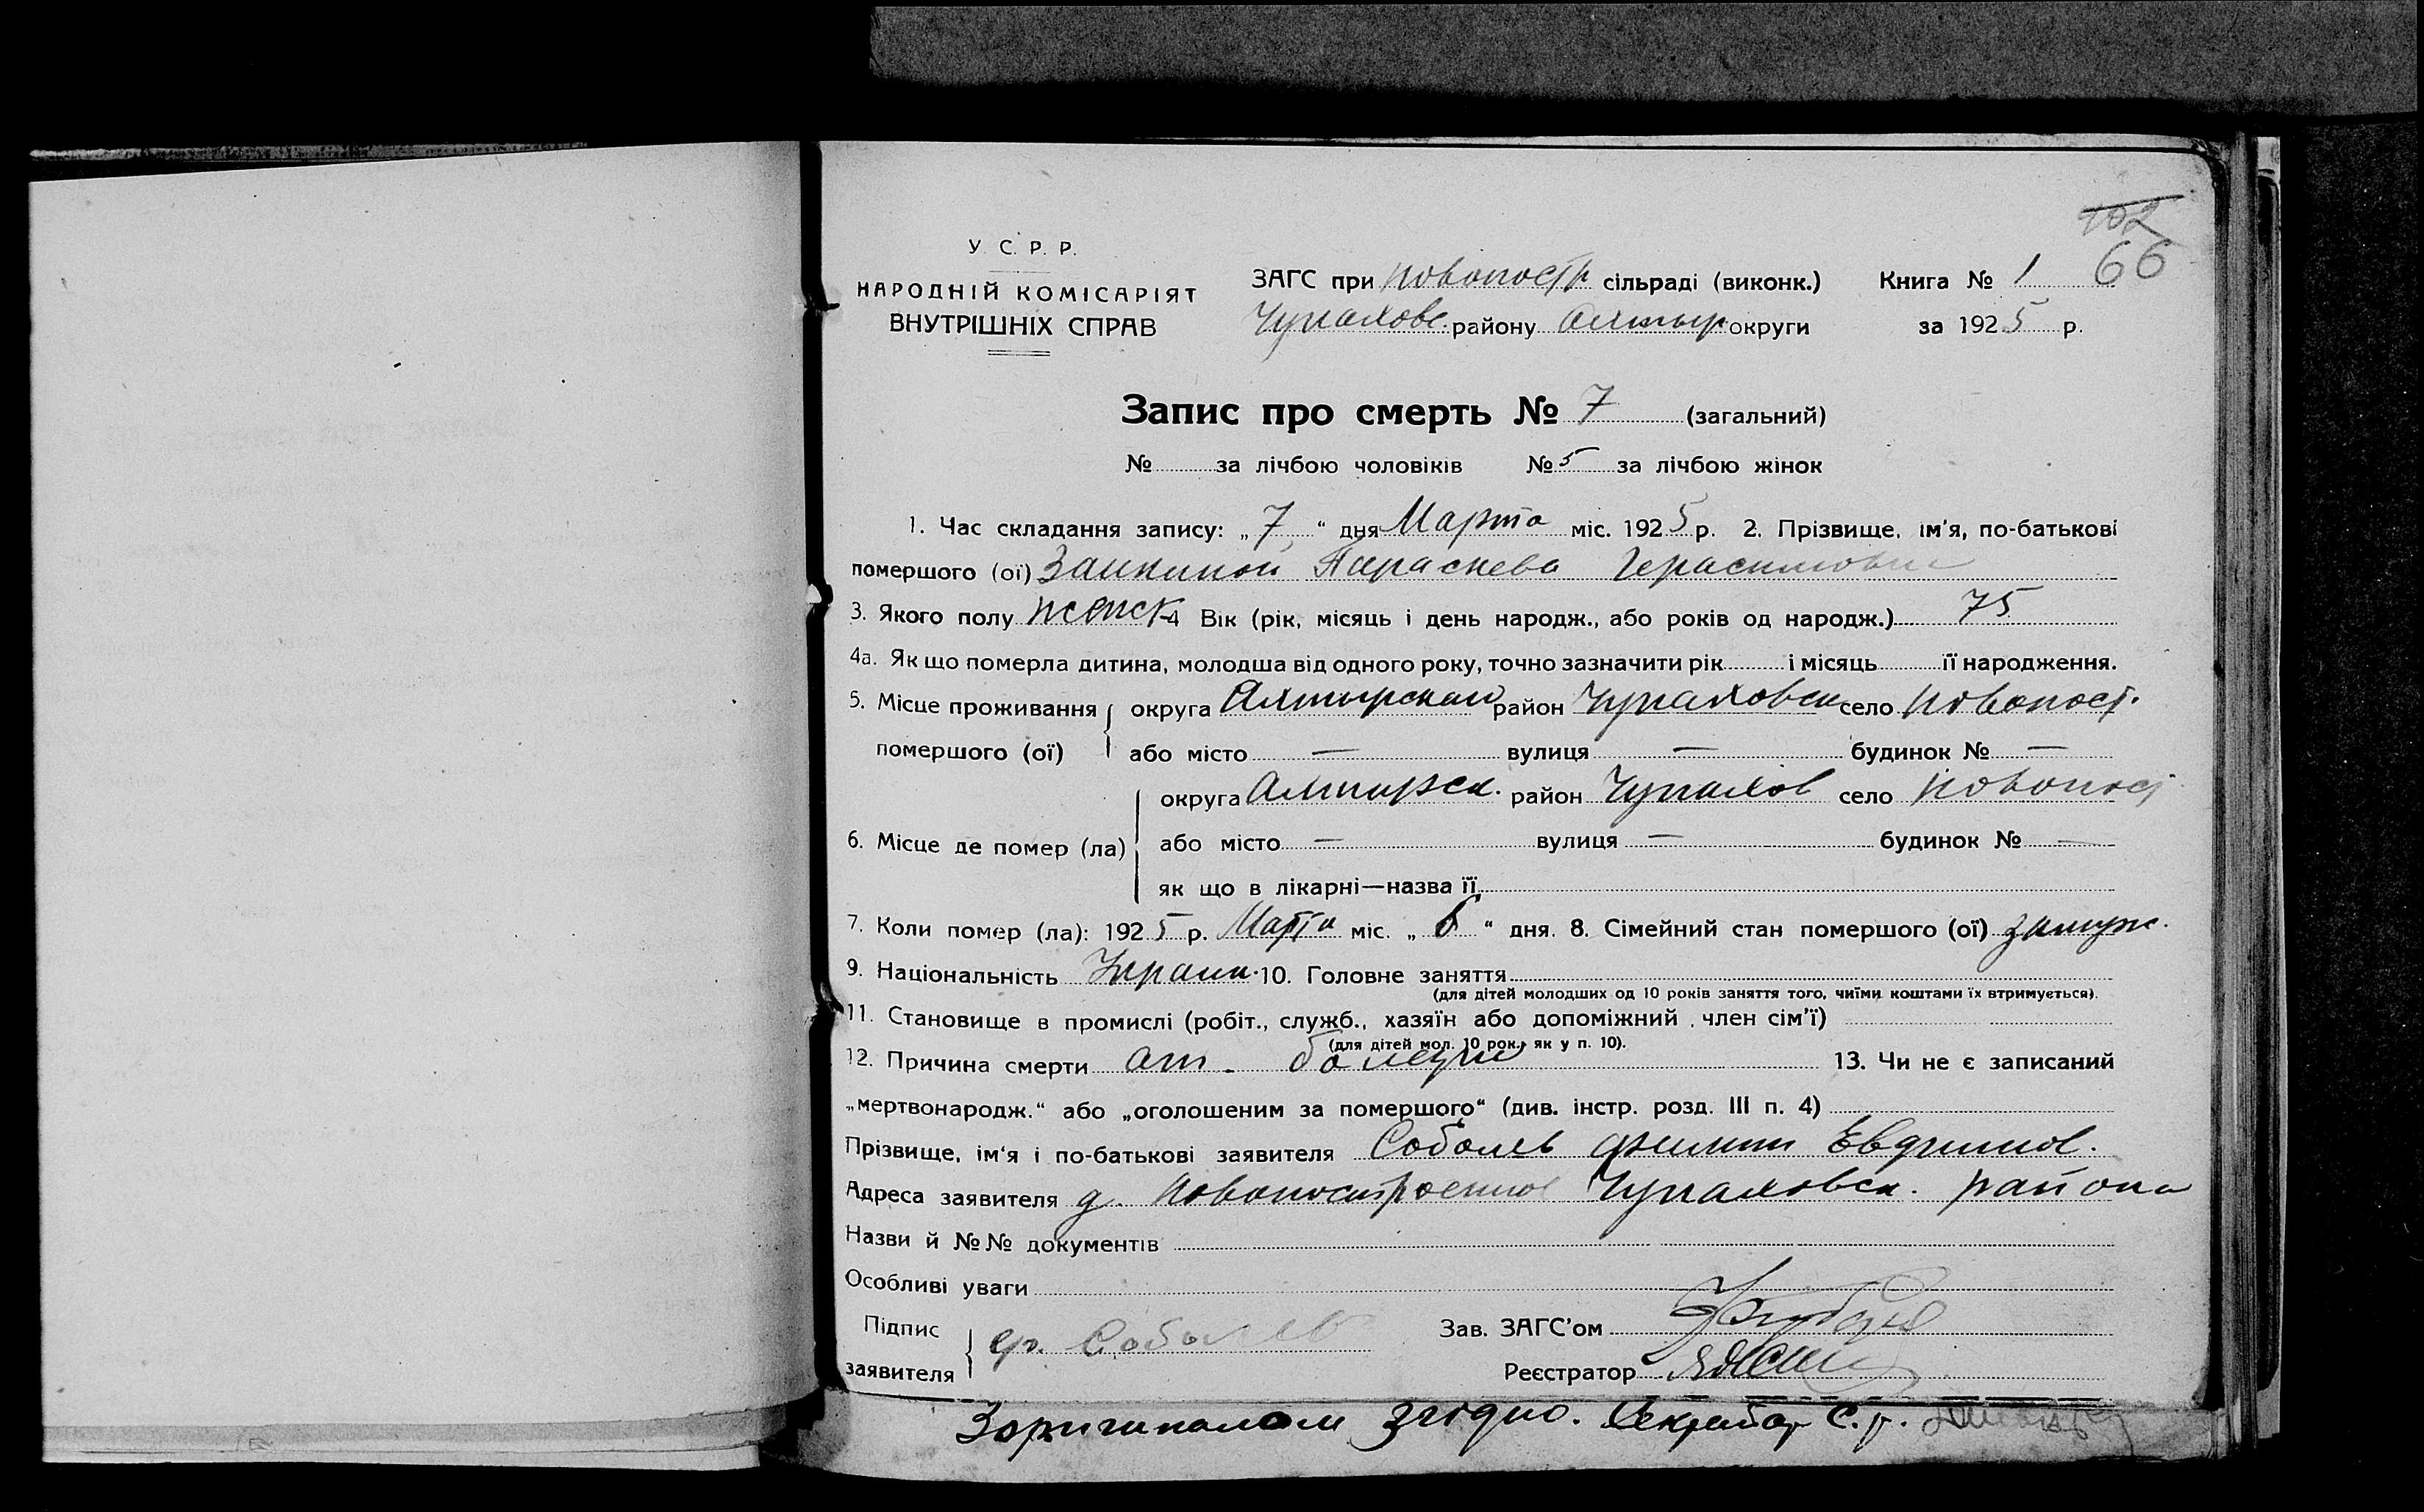 102
66
У. С. Р. Р.
НАРОДНІЙ КОМІСАРІЯТ
ВНУТРІШНІХ СПРАВ
ЗАГС при Новопостр. сільраді (виконк.) Книга № 1
Чупаховс. району Ахтыр округи за 1925 р.
Запис про смерть № 7 (загальний)
№ за лічбою чоловіків № 5 за лічбою жінок
1. Час складання запису: „7“ дня Марта міс. 1925 р. 2. Прізвище, ім'я, по-батькові
помершого (ої) Параскева Герасимовна
3. Якого полу женск 4 Вік (рік, місяць і день народж., або років од народж.) 75
4а. Як що померла дитина, молодша від одного року, точно зазначити рік і місяць її народження.
5. Місце проживання округа Ахтырская район Чупаховск село Новопост.
помершого (ої) або місто — вулиця — будинок № —
округа Ахтырск. район Чупахов село Новопост
6. Місце де помер (ла) або місто — вулиця — будинок № —
як що в лікарні—назва її
7. Коли помер (ла): 1925 р. Марта міс. „6“ дня. 8. Сімейний стан помершого (ої) замуж.
9. Національність Украин. 10. Головне заняття
(для дітей молодших од 10 років заняття того, чиїми коштами їх втримується).
11. Становище в промислі (робіт., служб., хазяїн або допоміжний член сім'ї)
(для дітей мол. 10 рок., як у п. 10).
12. Причина смерти от 13. Чи не є записаний
„мертвонародж.“ або „оголошеним за помершого“ (див. інстр. розд. III п. 4)
Прізвище, ім'я і по-батькові заявителя Соболев Филипп
Адреса заявителя д. Новопостроенное Чупаховск. района
Назви й №№ документів
Особливі уваги
Підпис
заявителя гр. Соболев
Зав. ЗАГС'ом
Реєстратор
З оригиналом згідно. Секретар С. р.